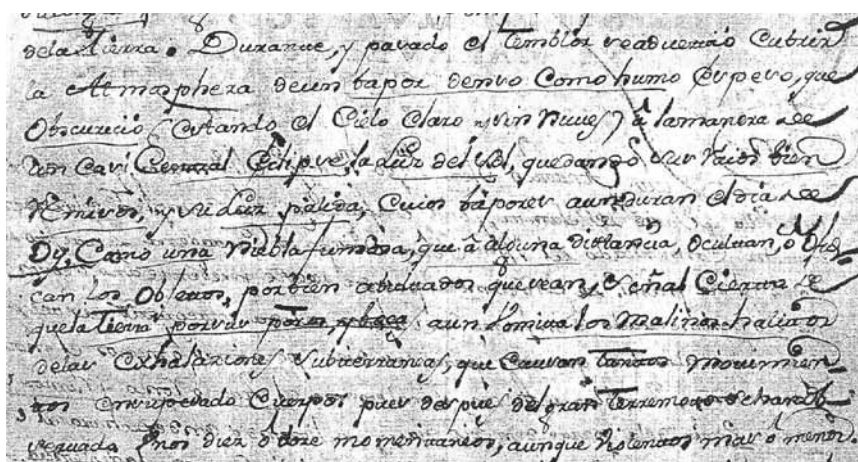 dela Tierra. Durante, y pasado el temblor se advertió cubrir
la Atmosphera de un bapor denso Como humo Espeso, que
Obscureció (estando el Cielo Claro y sin Nuves) â la manera de
un Casi Central Eclipse, la Luz del Sol, quedando sus raios bien
remisos, y su Luz palida, Cuios bapores aun duran el dia de
Oy, Como una Niebla fumosa, que â alguna distancia, Ocultan, ô Ofus
can los Objetos, por bien abultados que sean, Señal Cierta de
que la Tierra por sus poros, y bocas aun Vomita los Malinos halitos
delas Exhalaziones Subterraneas, que Causan tantos Movimien
tos en su pesado Cuerpo, pues despues del gran Terremoto se han ob
servado Unos diez ô doze momentaneos, aunque Violentos mas ô menos.